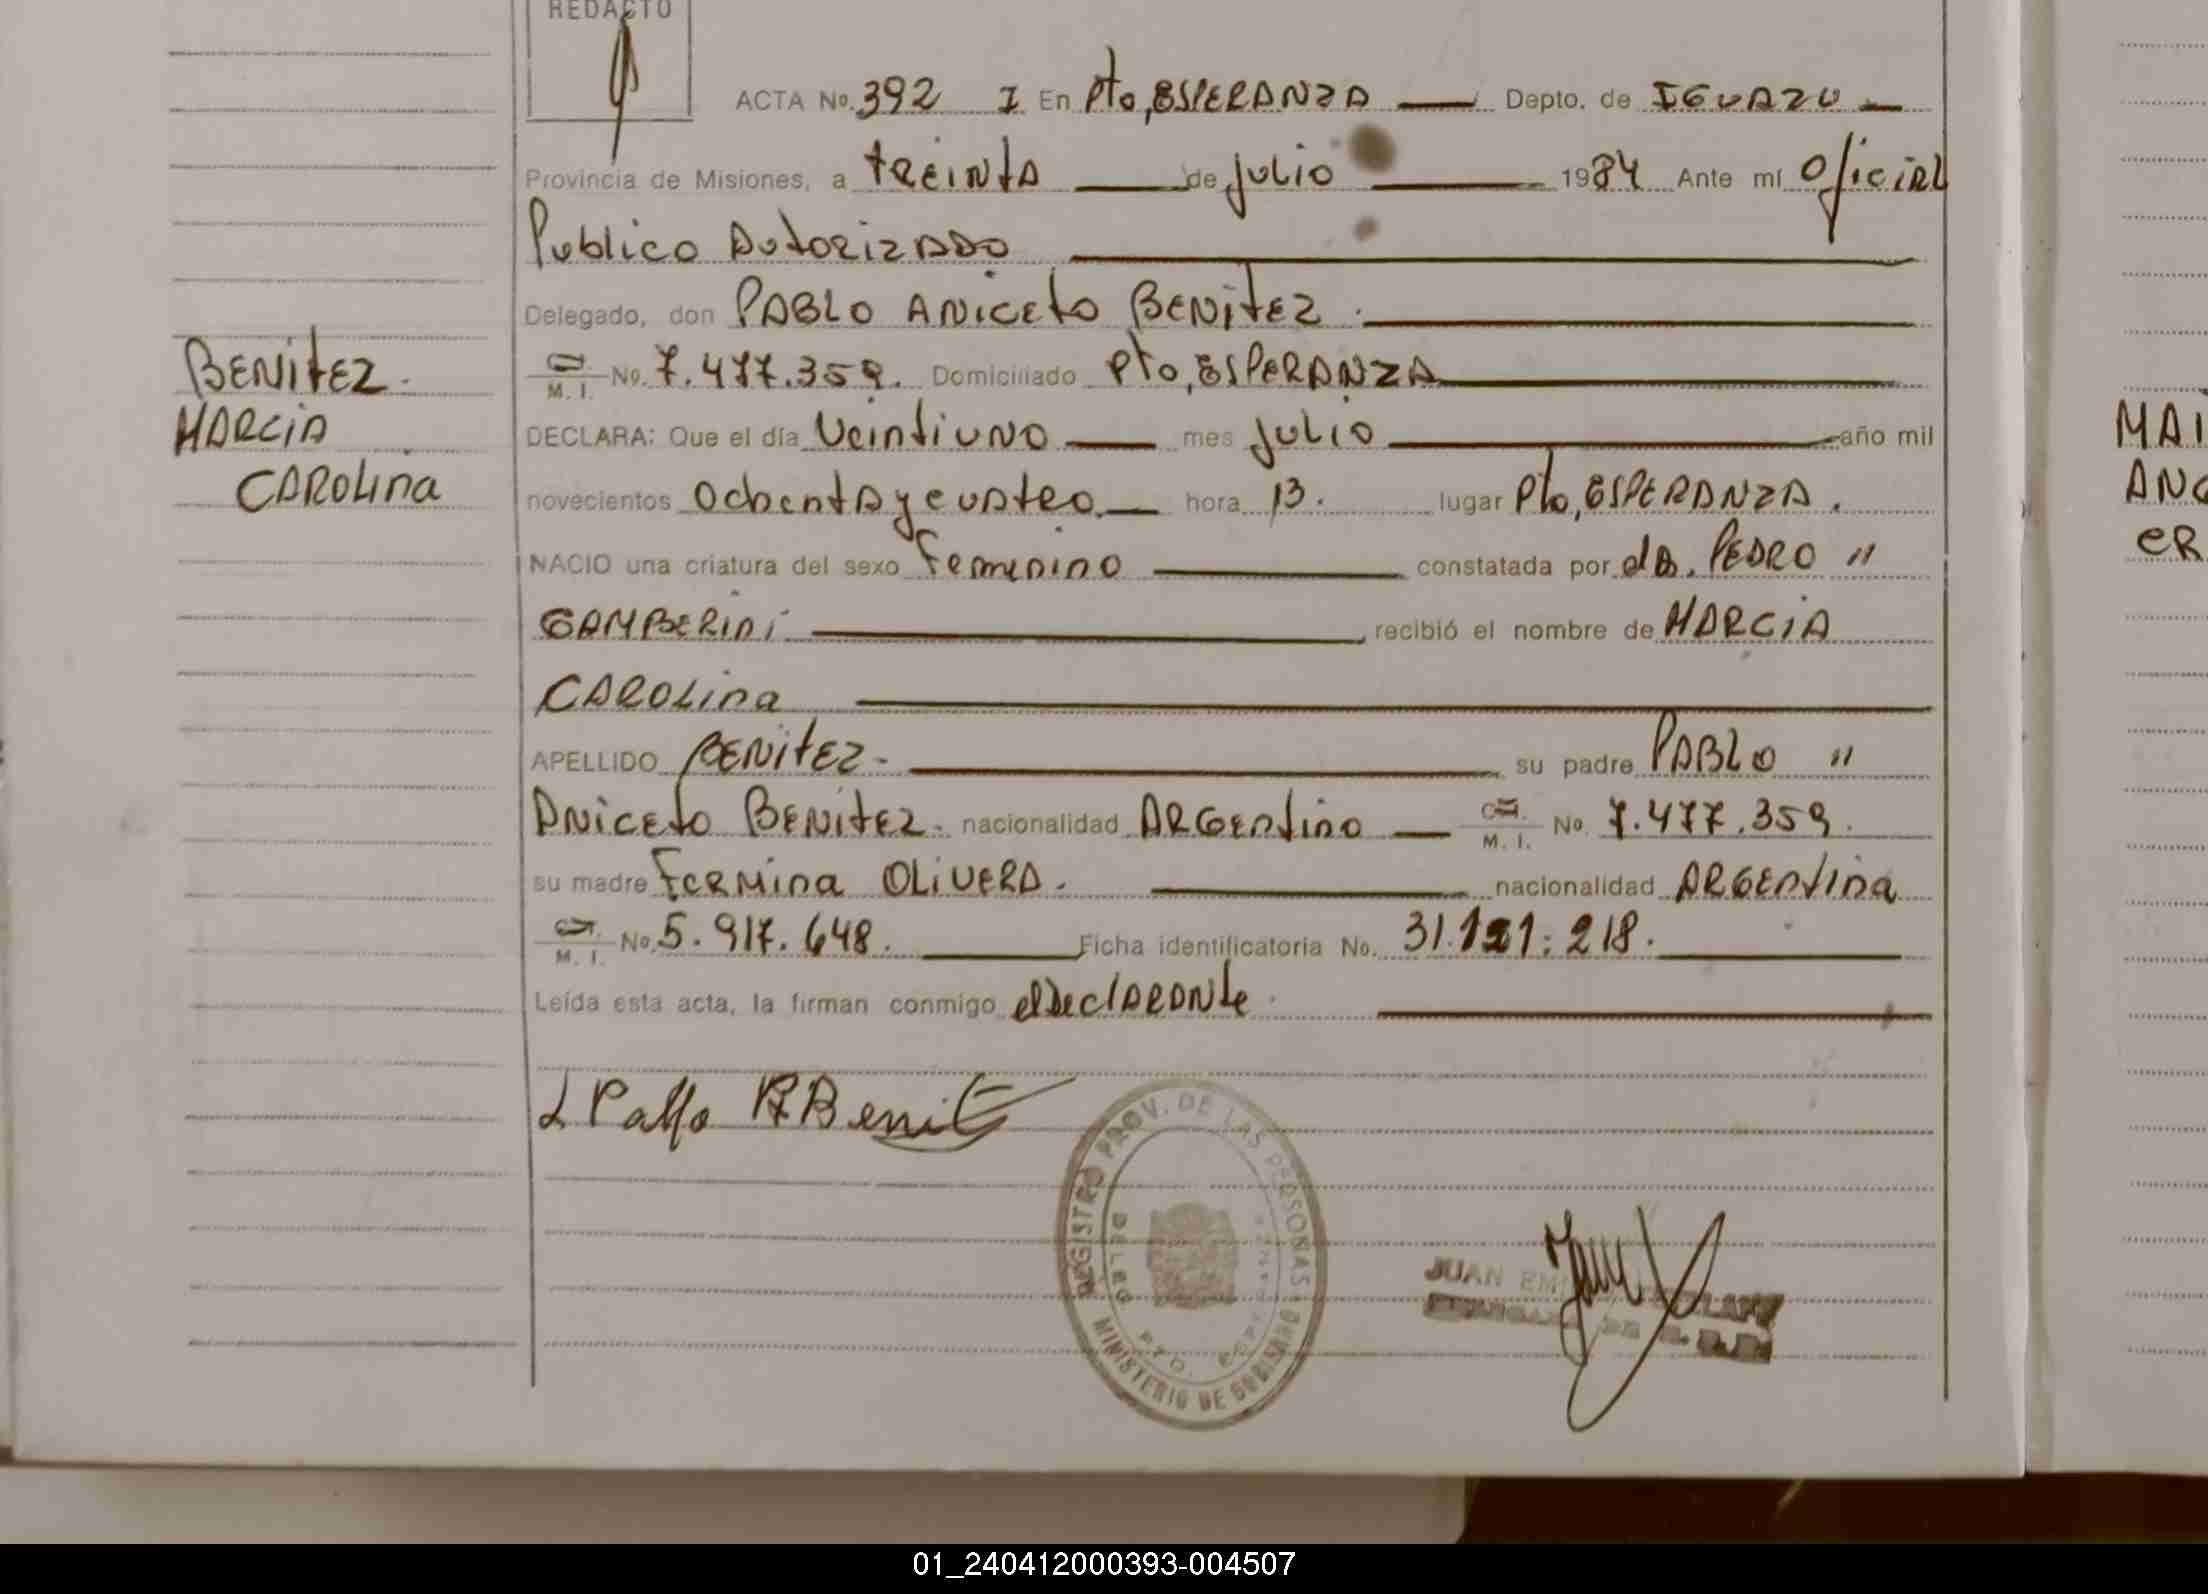 REDACTO
ACTA No. 392 I En Pto, ESPERANZA Depto. de IGUAZU
Provincia de Misiones, a treinta de julio 1984 Ante mí Oficial
Publico Autorizado
Delegado, don PABLO ANICETO BENITEZ.
C.I. M. I. No. 7.477.359. Domiciliado Pto, ESPERANZA
DECLARA: Que el día Veintiuno mes julio año mil
novecientos Ochenta y cuatro hora 13. lugar Pto, ESPERANZA.
NACIO una criatura del sexo Femenino constatada por dr. PEDRO "
GAMBERINI recibió el nombre de MARCIA
CAROLina
APELLIDO BENITEZ- su padre PABLO "
Aniceto BENITEZ- nacionalidad ARGentino C.I. M. I. No. 7.477.359.
su madre Fermina OLIVERA. nacionalidad ARGentina
C.I. M. I. No. 5.917.648. Ficha identificatoria No. 31.121.218.
Leída esta acta, la firman conmigo el declarante.
Pablo A Benit
BENITEZ-
MARCIA
CAROLina
REGISTRO PROV. DE LAS PERSONAS
MINISTERIO DE GOBIERNO
DELEG PTO.
JUAN
MAI
ANG
ER
01_240412000393-004507